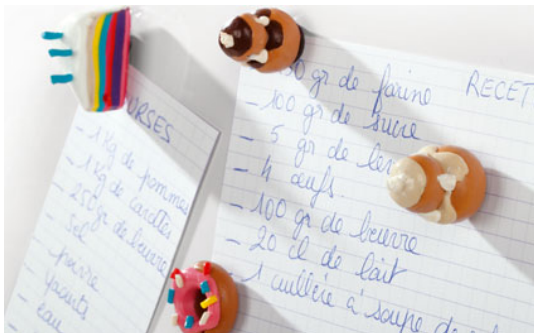 URSES
- 1 Kg de pommes
- 1 Kg de carottes
- 250 gr de beurre
- Sel
- poivre
- yaourts
- eau
RECET
50 gr de farine
- 100 gr de sucre
- 5 gr de lev
- 4 œufs
- 100 gr de beurre
- 20 cl de lait
- 1 cuillère à soupe de